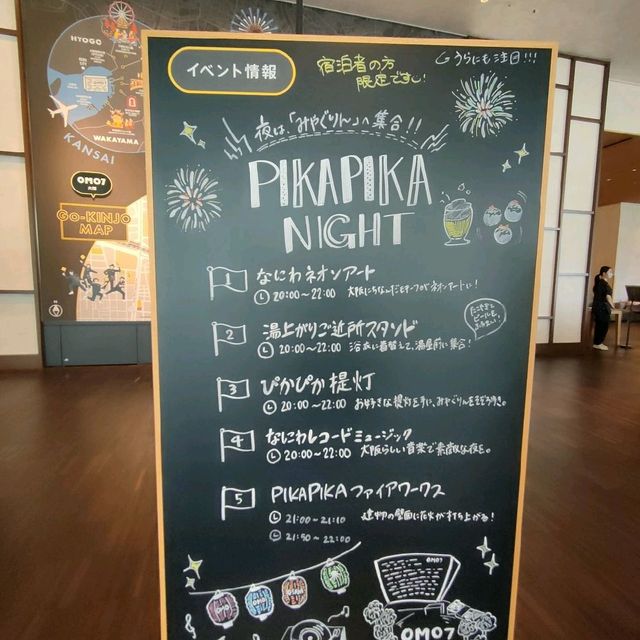 HYOGO
WAKAYAMA
KANSAI
OMO7
大阪
GO-KINJO
MAP
イベント情報
宿泊者の方
限定です!
うらにも注目!!!
夜は「みやぐりん」へ集合!!
PIKAPIKA
NIGHT
1 なにわネオンアート
20:00~22:00 大阪にちなんだモチーフがネオンアートに!
2 湯上がりご近所スタンド
20:00~22:00 浴衣に着替えて、湯屋前に集合!
たこ焼きと
ビールを
3 ぴかぴか提灯
20:00~22:00 お好きな提灯を手に、みやぐりんをそぞろ歩き。
4 なにわレコードミュージック
20:00~22:00 大阪らしい音楽で素敵な夜を。
5 PIKAPIKAファイアワークス
21:00~21:10 建物の壁面に花火が打ち上がる!
21:50~22:00
OMO
OMO
OMO7
OMO7